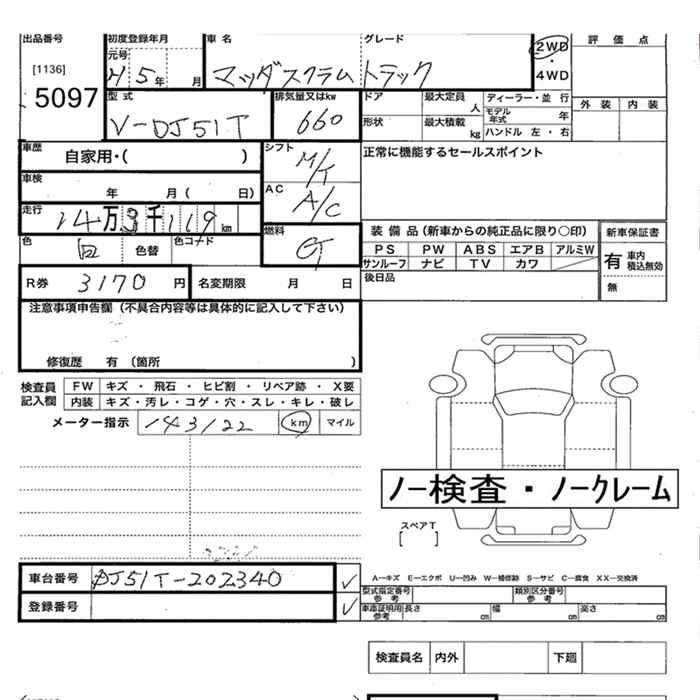 出品番号 初度登録年月 車名 グレード 評価点
[1136] 元号 H5年 月 マツダスクラムトラック 2WD・4WD
5097 型式 排気量又はkw ドア 最大定員 人 ディーラー・並行 外装 内装
V-DJ51T 660 形状 最大積載 kg モデル年式 年
ハンドル 左・右
車歴 自家用・( ) シフト M/T 正常に機能するセールスポイント
車検 年 月( 日) AC A/C
走行 14万3千119km 燃料 装備品(新車からの純正品に限り○印) 新車保証書
色 色替 色コード PS PW ABS エアB アルミW 有 車内積込無効
サンルーフ ナビ TV カワ
R券 3170円 名変期限 月 日 後日品 無
注意事項申告欄(不具合内容等は具体的に記入して下さい)
修復歴 有 (箇所 )
検査員記入欄 FW キズ・飛石・ヒビ割・リペア跡・X要
内装 キズ・汚レ・コゲ・穴・スレ・キレ・破レ
メーター指示 143122 km マイル
ノー検査・ノークレーム
スペアT
[ ]
車台番号 DJ51T-202340 ✓
A-キズ E-エクボ U-凹み W-補修跡 S-サビ C-腐食 XX-交換済
登録番号 ✓ 型式指定番号 参考 類別区分番号 参考
車庫証明用 参考 長さ cm 幅 cm 高さ cm
検査員名 内外 下廻